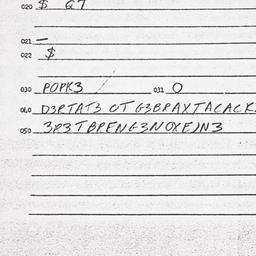 020 $ 67
021 —
022 $
030 POPK3 031 O
040 D3RTAT3 OT G3BRAXTACACK
050 3R3TBRENG3NOXEJN3